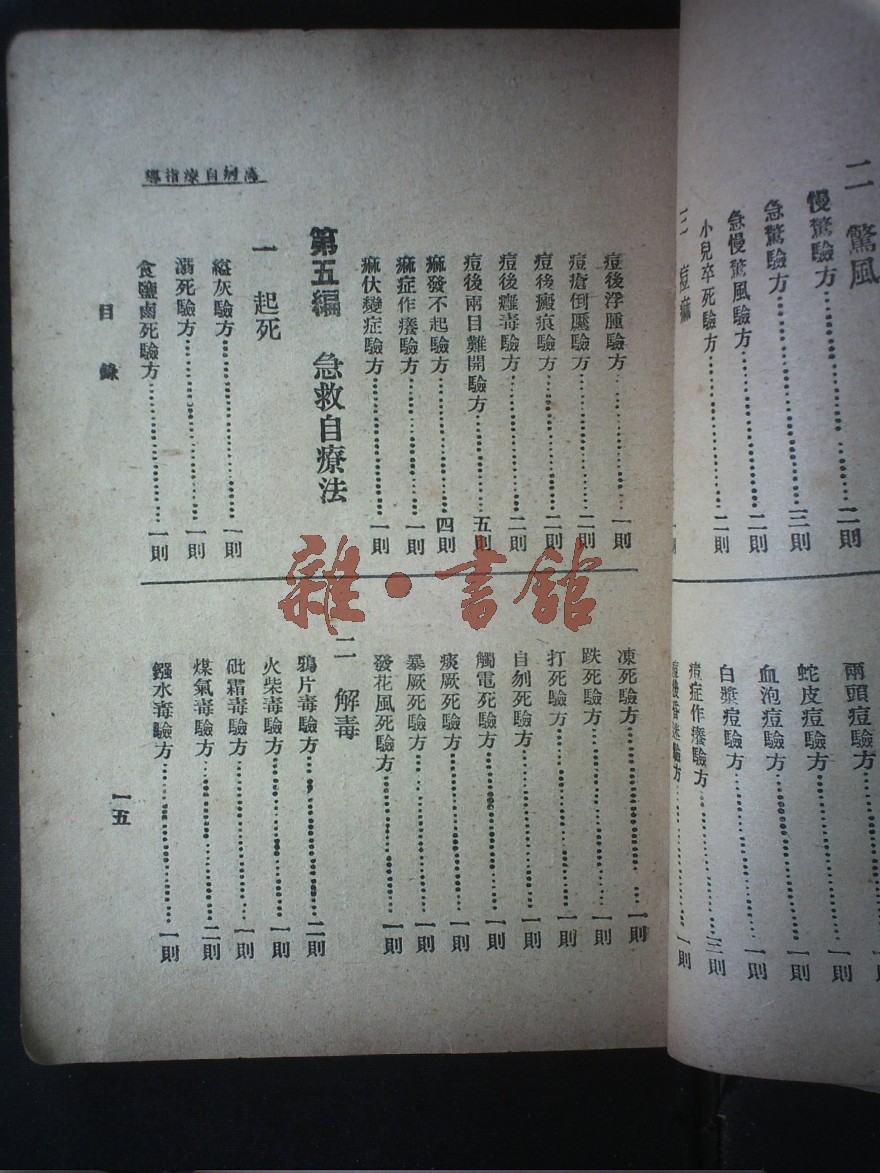 二 驚風
慢驚驗方……二則
急驚驗方……三則
急慢驚風驗方……二則
小兒卒死驗方……二則
三 痘痲
兩頭痘驗方
蛇皮痘驗方……一則
血泡痘驗方……一則
白漿痘驗方……一則
痘症作癢驗方……三則
驗方……一則
病自療指導
痘後浮腫驗方……一則
痘瘡倒靨驗方……二則
痘後瘢痕驗方……二則
痘後癰毒驗方……二則
痘後兩目難開驗方……五則
痲發不起驗方……四則
痲症作癢驗方……一則
痲伏變症驗方……一則
第五編 急救自療法
一 起死
縊灰驗方……一則
溺死驗方……一則
食鹽鹵死驗方……一則
凍死驗方……一則
跌死驗方……一則
打死驗方……一則
自刎死驗方……一則
觸電死驗方……一則
痰厥死驗方……一則
暴厥死驗方……一則
發花風死驗方……一則
二 解毒
鴉片毒驗方……二則
火柴毒驗方……一則
砒霜毒驗方……一則
煤氣毒驗方……二則
鏹水毒驗方……一則
目錄
一五
雜·書館